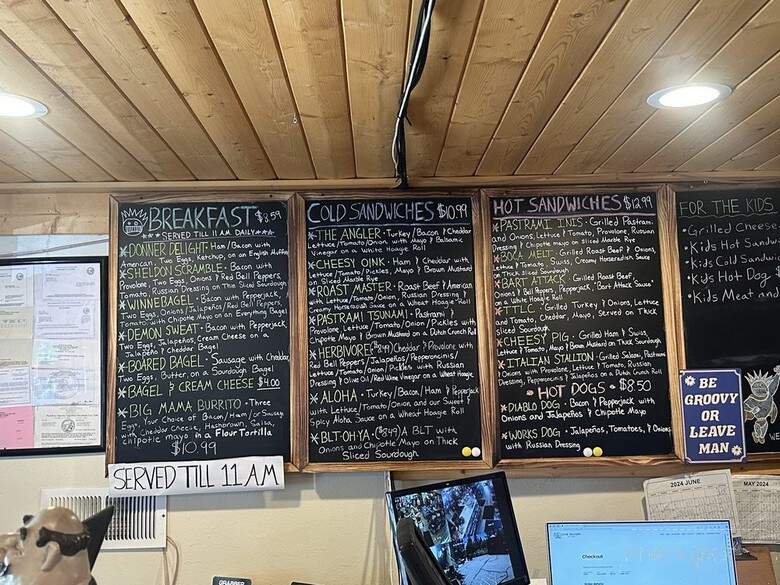 BREAKFAST $8.59
SERVED TILL 11 AM DAILY
DONNER DELIGHT · Ham/Bacon with
American, Two Eggs, Ketchup, on an English Muffin
SHELDON SCRAMBLE · Bacon with
Provolone, Two Eggs, Onions & Red Bell Peppers,
Tomato, Russian Dressing on Thick Sliced Sourdough
WINNEBAGEL · Bacon with Pepperjack,
Two Eggs, Onions/Jalapeños/Red Bell Peppers/
Tomato, with Chipotle Mayo on an Everything Bagel
DEMON SWEAT · Bacon with Pepperjack,
Two Eggs, Jalapeños, Cream Cheese on a
Jalapeño & Cheddar Bagel
BOARED BAGEL · Sausage with Cheddar,
Two Eggs, Butter on a Sourdough Bagel
BAGEL & CREAM CHEESE $4.00
BIG MAMA BURRITO · Three
Eggs, Your Choice of Bacon/Ham/or Sausage
with Cheddar Cheese, Hashbrown, Salsa,
Chipotle mayo in a Flour Tortilla
$10.99
SERVED TILL 11 AM
COLD SANDWICHES $10.99
THE ANGLER · Turkey/Bacon & Cheddar
Lettuce/Tomato/Onion with Mayo & Balsamic
Vinegar on a Wheat Hoagie Roll
CHEESY OINK · Ham & Cheddar with
Lettuce/Tomato/Pickles, Mayo & Brown Mustard
on Sliced Marble Rye
ROAST MASTER · Roast Beef & American
with Lettuce/Tomato/Onion, Russian Dressing &
Creamy Horseradish Sauce on a Wheat Hoagie Roll
PASTRAMI TSUNAMI · Pastrami &
Provolone Lettuce/Tomato/Onion/Pickles with
Chipotle Mayo & Brown Mustard on a Dutch Crunch Roll
HERBIVORE ($8.49) Cheddar & Provolone with
Red Bell Peppers/Jalapeños/Pepperoncinis/
Lettuce/Tomato/Onion/Pickles with Russian
Dressing & Olive Oil/Red Wine Vinegar on a Wheat Hoagie
ALOHA · Turkey/Bacon/Ham & Pepperjack
with Lettuce/Tomato/Onion, and our Sweet &
Spicy Aloha Sauce on a Wheat Hoagie Roll
BLT-OH-YA · ($8.49) A BLT with
Onions and Chipotle Mayo on Thick
Sliced Sourdough
HOT SANDWICHES $12.99
PASTRAMI INIS · Grilled Pastrami
and Onions, Lettuce & Tomato, Provolone, Russian
Dressing & Chipotle mayo on Sliced Marble Rye
BOCA MELT · Grilled Roast Beef & Onions,
Lettuce & Tomato, Swiss, Creamy Horseradish Sauce
on Thick Sliced Sourdough
BART ATTACK · Grilled Roast Beef,
Onions, Bell Peppers, Pepperjack, "Bart Attack Sauce"
on a White Hoagie Roll
TTLC · Grilled Turkey & Onions, Lettuce
and Tomato, Cheddar, Mayo, Served on Thick
Sliced Sourdough
CHEESY PIG · Grilled Ham & Swiss,
Lettuce & Tomato, Mayo & Brown Mustard on Thick Sourdough
ITALIAN STALLION · Grilled Salami, Pastrami
and Onions with Provolone, Lettuce & Tomato, Russian
Dressing, Pepperoncini's & Jalapeños on a Dutch Crunch Roll
HOT DOGS · $8.50
DIABLO DOG · Bacon & Pepperjack with
Onions and Jalapeños & Chipotle Mayo
WORKS DOG · Jalapeños, Tomatoes, & Onions
with Russian Dressing
FOR THE KIDS
Grilled Cheese
Kids Hot Sandw
Kids Cold Sandwic
Kids Hot Dog
Kids Meat and
BE
GROOVY
OR
LEAVE
MAN
2024 JUNE
MAY 2024
Checkout